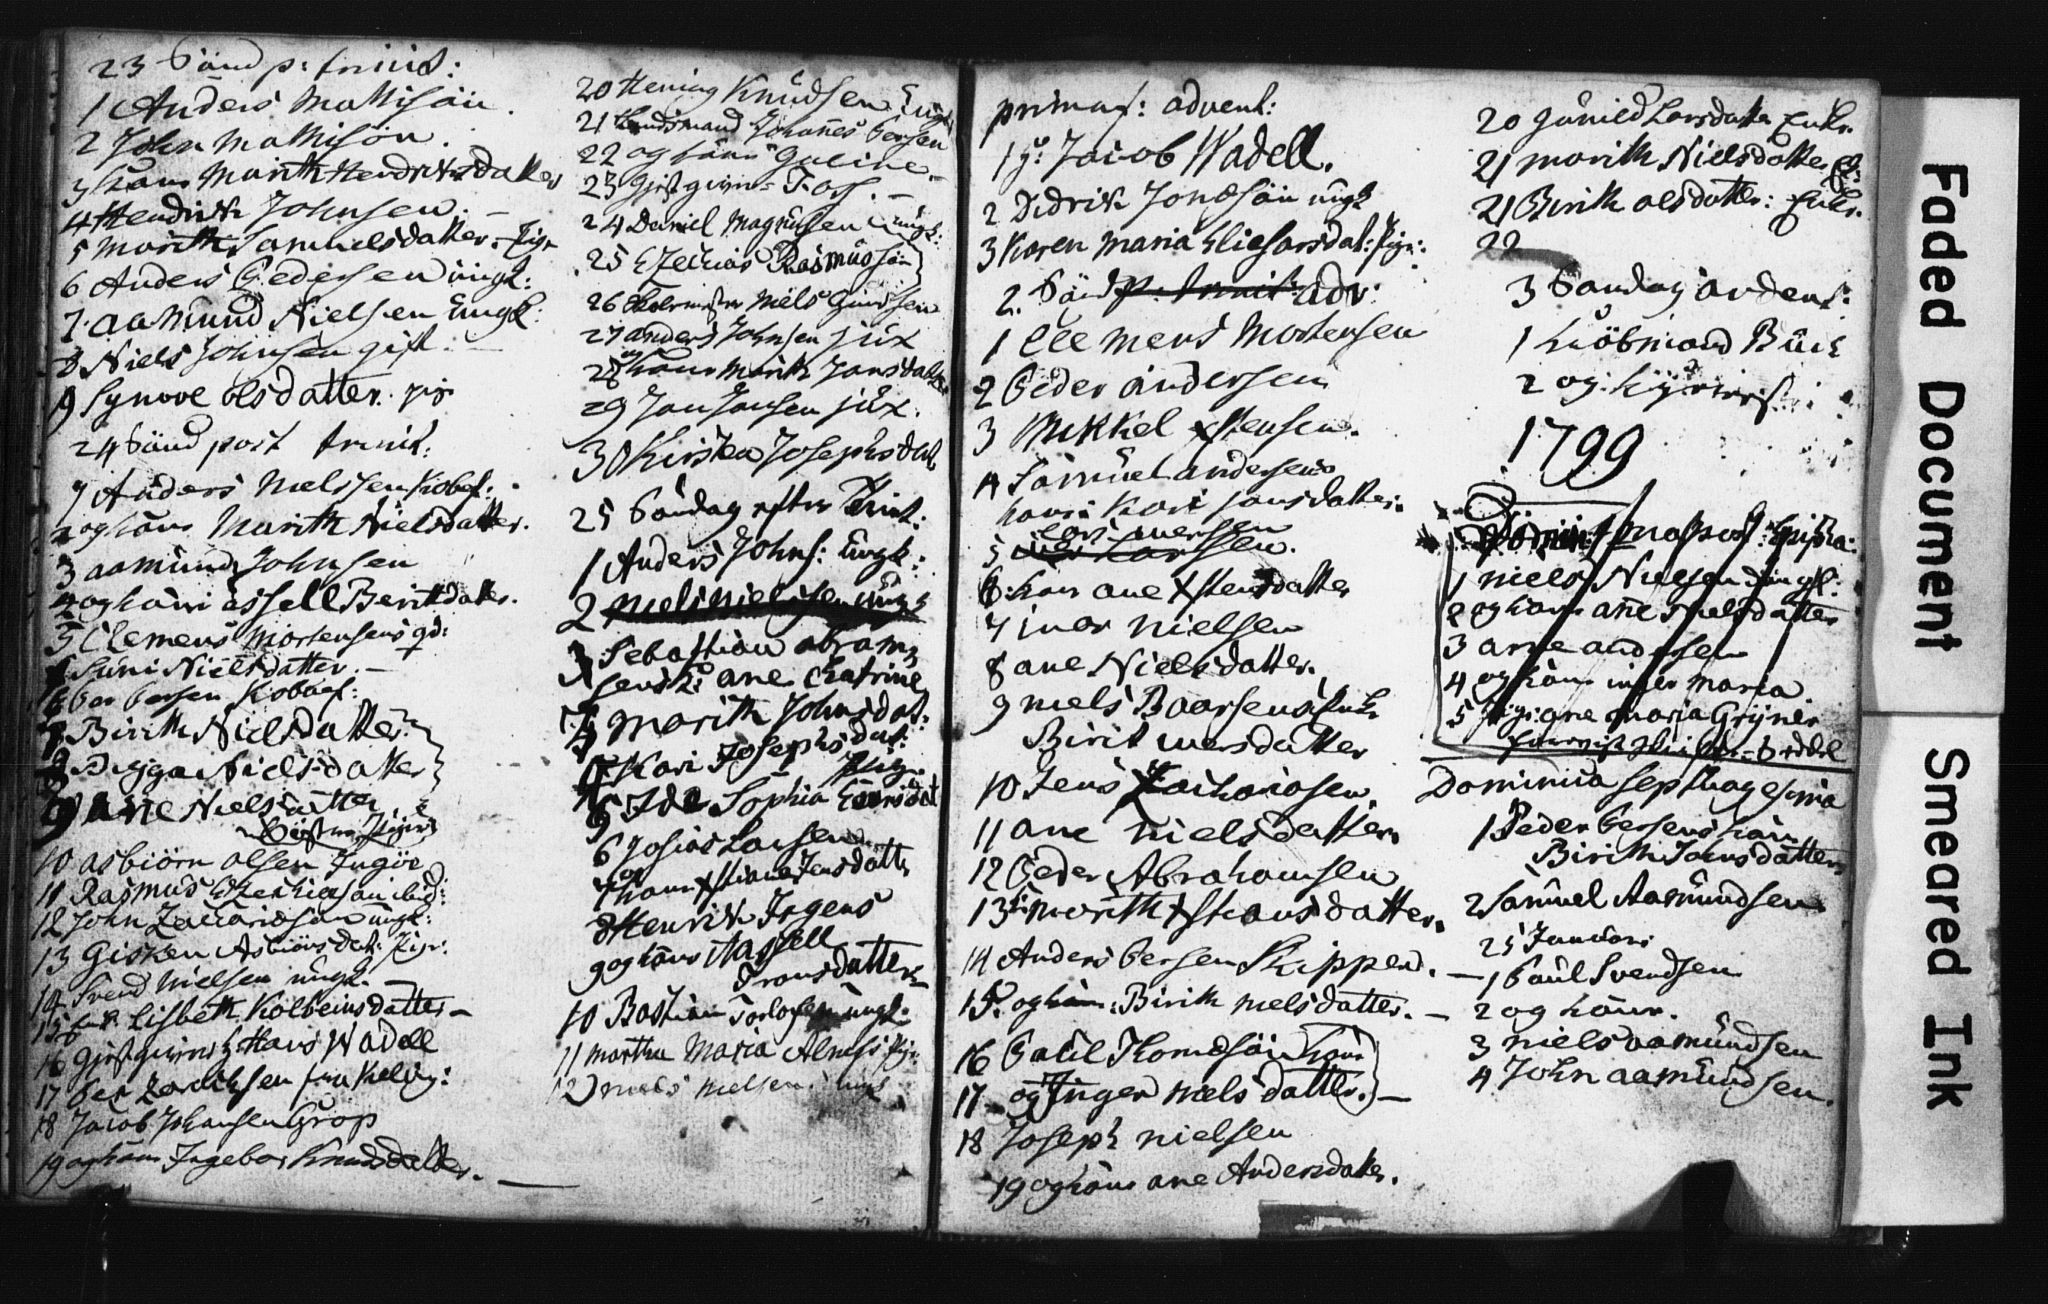 23 Sönd p: trinit:
1 Anders Mathisön
2 John Mathisön.
3 hans Marith Hendrixdatter
4 Hendrik Johnsen. —
5 Marith Samuelsdatter. Pige
6 Anders Pedersen üngk:
7 Aamund Nielsen üngk:
8 Niels Johnsen gift. —
9 Synove olsdatter. pig
24 Sönd post trinit:
1 Anders Nielssen Kobef:
2 og hans Marith Nielsdatter.
3 aamünd Johnsen
4 og hans assell Beritdatter.
5 Clemens Mortensens
Suni Nielsdatter. —
6 Per Persen Kobaef:
7 Birith Nielsdatter
8 Bygga Nielsdatter
9 Ane Nielsdatter
10 asbiörn olsen
11 Rasmus
12 John Zachariasön üngk:
13 Gisken Asbiörsdat: Pige:
14 Svend Nielsen üngk. —
15 Enk Lisbeth Kolbeinsdatter —
16 Hans Wadell
17 Per
18 Jacob Johansen Grop
19 og hans Ingebor Knudsdatter. —
20 Hening Knüdsen üngk
21 Landsmand Johannes Persen
22 og hans Guline. —
23 Foss. —
24 Daniel Magnussen üngk:
25 Ezechias Rasmussön
26 Niels Gundersen
27 anders Johnsen jüx
28 og hans Marith Jonsdatter
29 Jon Jonsen jüx.
30 Kirsten Josephsdat
25 Söndag efter Trinit:
1 Anders Johns: üngk:
2 niels nielssen üngk
3 Sebastian abrams
sens k: ane Catrine
4 Marith Johnsdat:
Kari Josephsdat:
Pige
Ide Sophia
6 Josias Larsen
7 og hans Xstiana Jensdatter
8 Henrik Irgens
9 og hans Assell
Tronsdatter
10 Bastian üngk:
11 martha Maria Pige
12 niels nielsen üngk
primaf: advent:
1 Jacob Wadell.
2 Didrik Jonæsön üngk
3 Karen Maria Eliesarsdat: Pige:
2. Sönd p: trinit: adv:
1 Clemens Mortensen
2 Peder andersen
3 Mikkel Xstensen.
4 Samuel andersens
hans Kari Jonsdatter.
Lars iversen
5 iver Larssen.
6 hans ane Xstensdatter
7 iver nielsen
8 ane Nielsdatter.
9 niels Baarsens Enk
Birit iversdatter
10 Jens Zachariasen
11 ane nielsdatter
12 Peder Abrahamsen
13 Marith Xstiansdatter.
14 Anders Persen Skipper. —
15. og hans: Birith nielsdatter. —
16 Paül Thomæsön
17 og Inger nielsdatter. —
18 Joseph nielsen
19 og hans ane Andersdatter.
20 Gunild Larsdatter Enke.
21 marith Nielsdatter
21 Birith olsdatter: Enke.
22
3 Söndag i advent:
1 Kiöbmand Büch
2 og
1799
1 niels Nielsen üngk:
2 og hans ane Nielsdatter
3 arne andersen
4 og hans inger maria
5 Pige: ane maria Gryner
Dominica septuagesima
1 Peder Persens hans
Birith Jonsdatter
2 Samuel Aamündsen
25 Januari
1 Paül Svendsen
2 og hans.
3 niels aamündsen
4 John aamündsen.
Faded Document
Smeared Ink